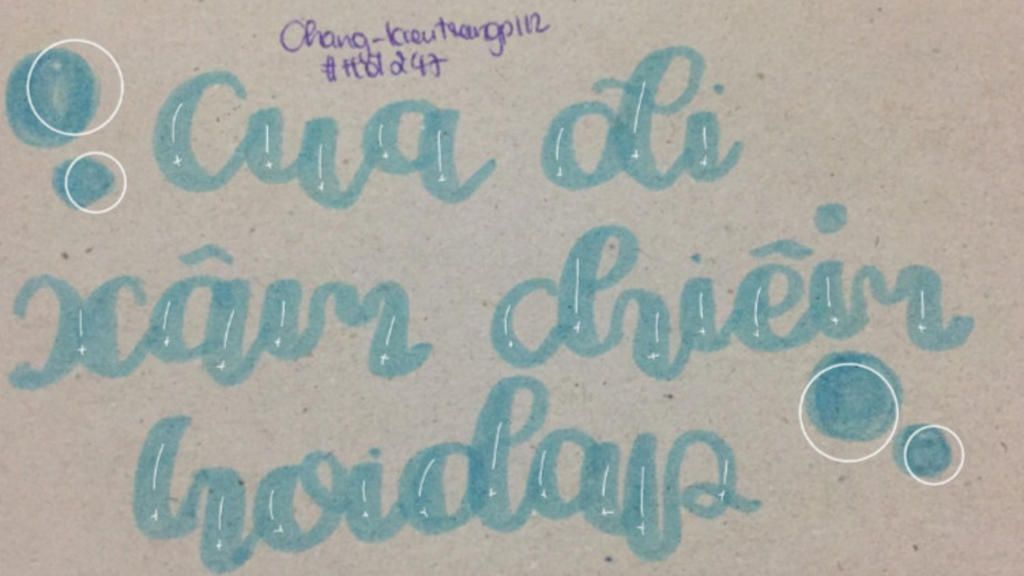 Chang-kieutrangp112
Cua đi
xâm chiếm
hoidap